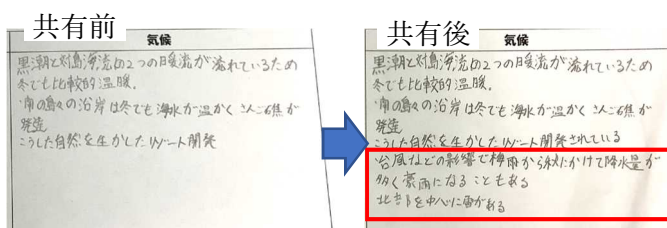 共有前
気候
黒潮と対馬海流の2つの暖流が流れているため
冬でも比較的温暖。
・南の島々の沿岸は冬でも海水が温かくさんご礁が
発達
こうした自然を生かしたリゾート開発
共有後
気候
黒潮と対馬海流の2つの暖流が流れているため
冬でも比較的温暖。
・南の島々の沿岸は冬でも海水が温かくさんご礁が
発達
こうした自然を生かしたリゾート開発されている
・台風などの影響で梅雨から秋にかけて降水量が
多く豪雨になることもある
北部を中心に雪がある